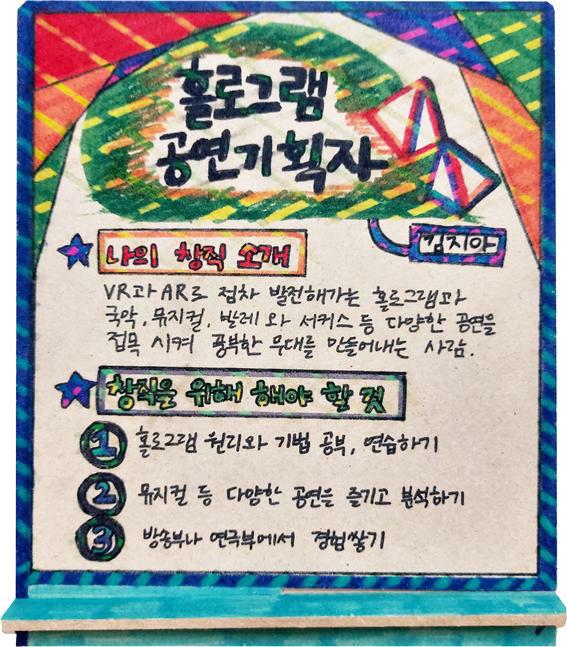 홀로그램
공연기획자
김지아
나의 창직 소개
VR과 AR로 점차 발전해가는 홀로그램과
국악, 뮤지컬, 발레와 서커스 등 다양한 공연을
접목 시켜 풍부한 무대를 만들어내는 사람.
창직을 위해 해야 할 것
1 홀로그램 원리와 기법 공부, 연습하기
2 뮤지컬 등 다양한 공연을 즐기고 분석하기
3 방송부나 연극부에서 경험쌓기